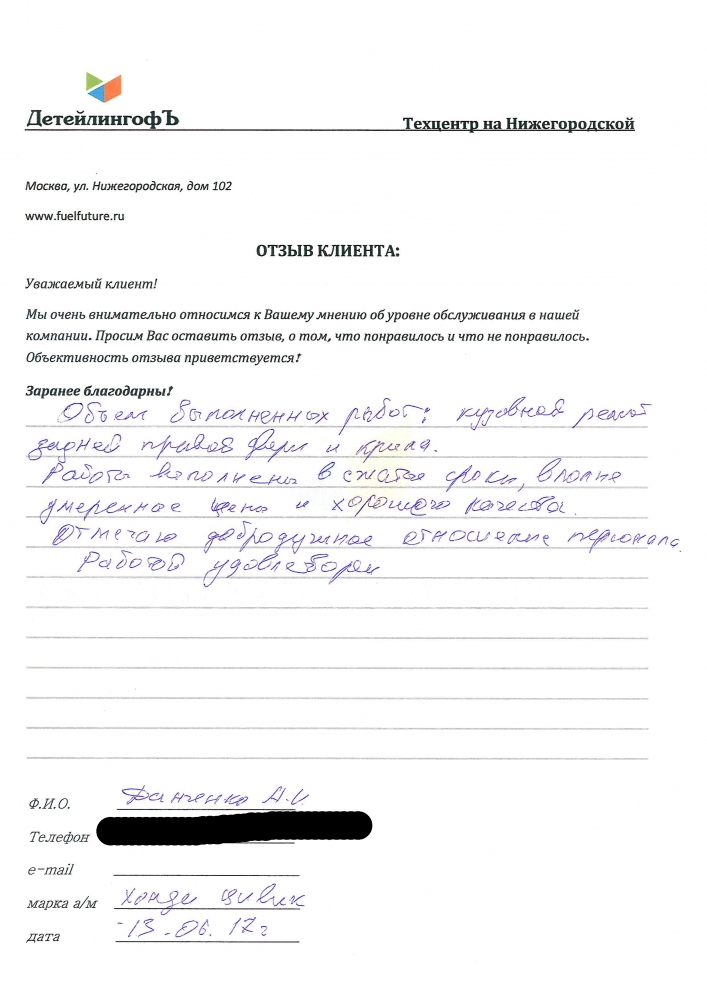 ДетейлингофЪ
Техцентр на Нижегородской
Москва, ул. Нижегородская, дом 102
www.fuelfuture.ru
ОТЗЫВ КЛИЕНТА:
Уважаемый клиент!
Мы очень внимательно относимся к Вашему мнению об уровне обслуживания в нашей
компании. Просим Вас оставить отзыв, о том, что понравилось и что не понравилось.
Объективность отзыва приветствуется!
Заранее благодарны!
Объем выполненных работ: кузовной ремонт
задней правой двери и крыла.
Работы выполнены в сжатые сроки, вполне
умеренные цены и хорошего качества.
Отмечаю добродушное отношение персонала.
Работой удовлетворен
Ф.И.О. Данченко А.И.
Телефон
e-mail
марка а/м Хонда цивик
дата 13.06.17г